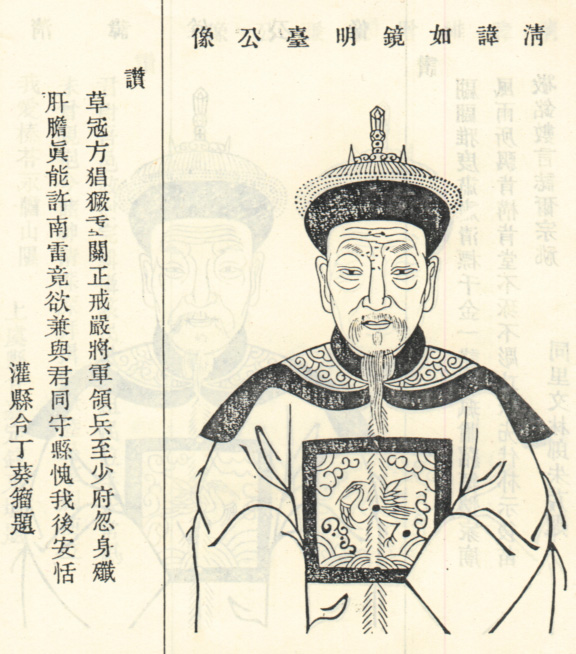 清諱如鏡明臺公像
讚
草寇方猖獗重關正戒嚴將軍領兵至少府忽身殲
肝膽眞能許南雷竟欲兼與君同守縣愧我後安恬
灌縣令丁葵籀題